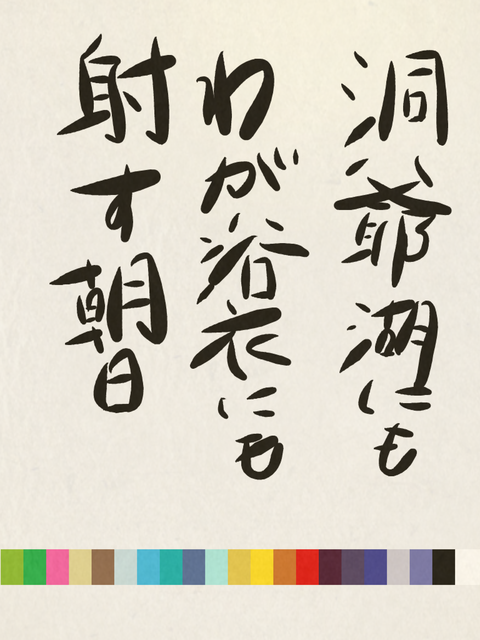 洞爺湖にも
わが浴衣にも
射す朝日